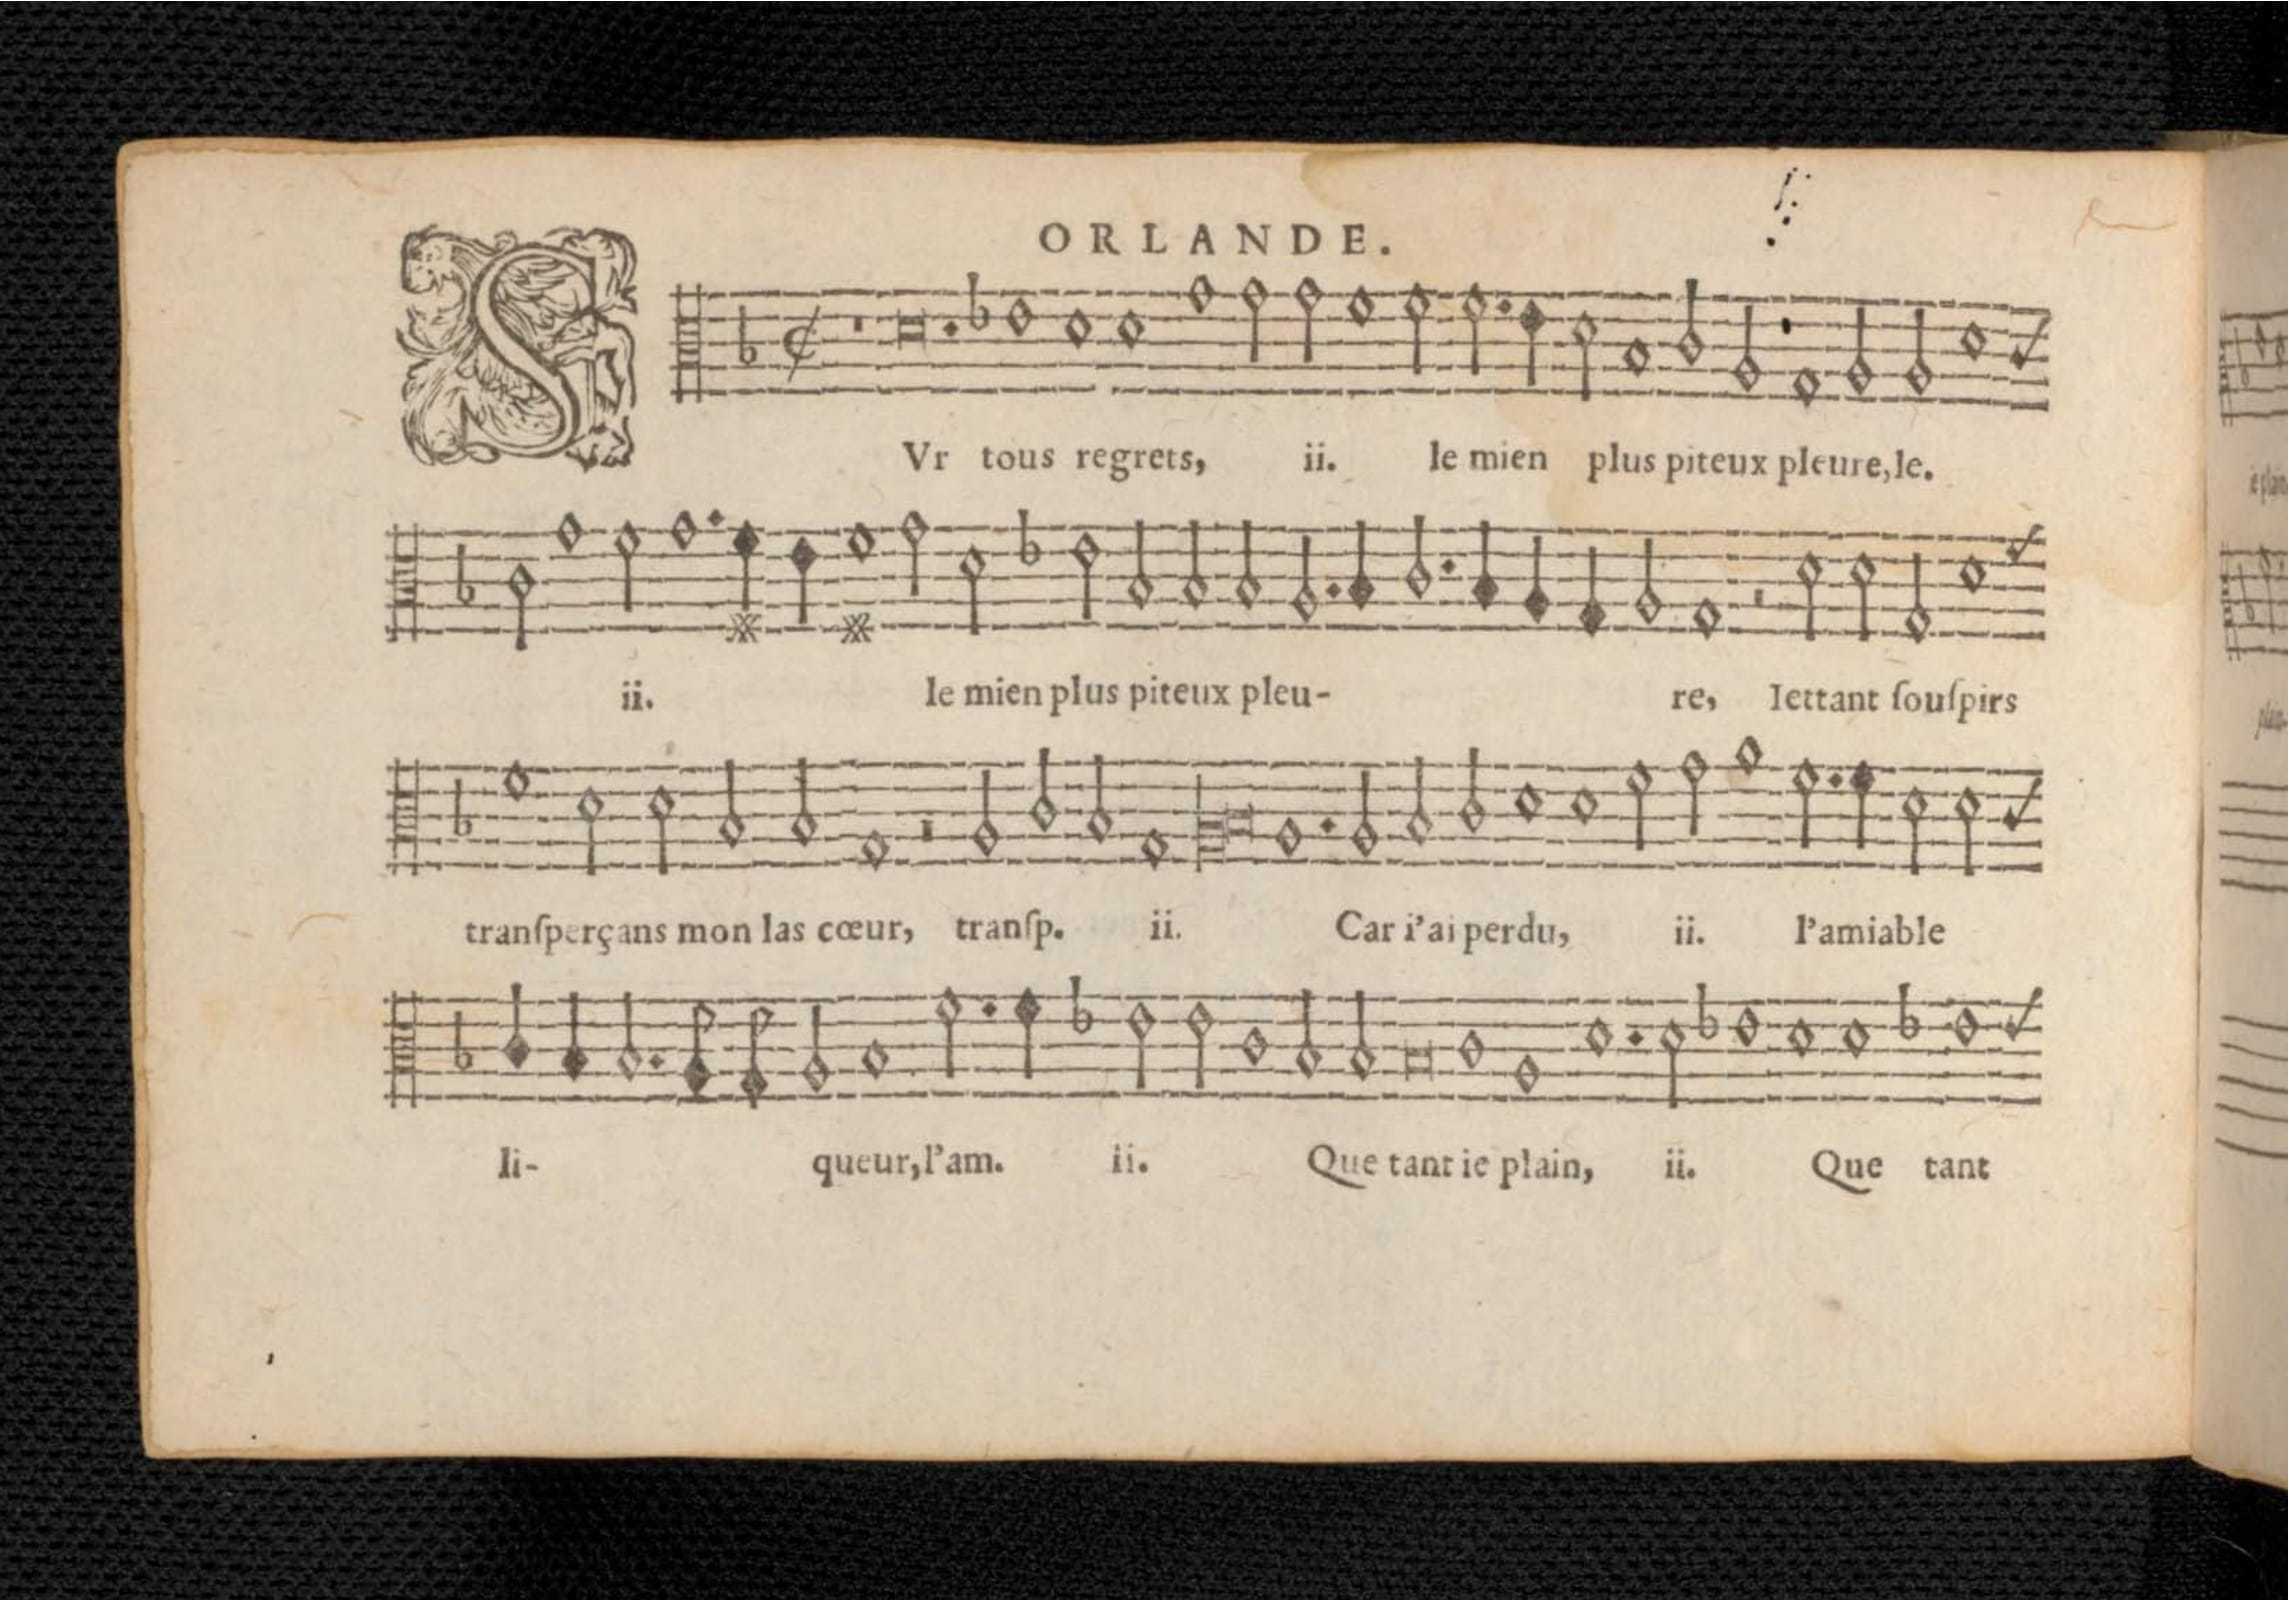 ORLANDE.
SVr tous regrets, ii. le mien plus piteux pleure, le.
ii. le mien plus piteux pleu- re, Iettant ſouſpirs
tranſperçans mon las cœur, tranſp. ii. Car i'ai perdu, ii. l'amiable
li- queur, l'am. ii. Que tant ie plain, ii. Que tant